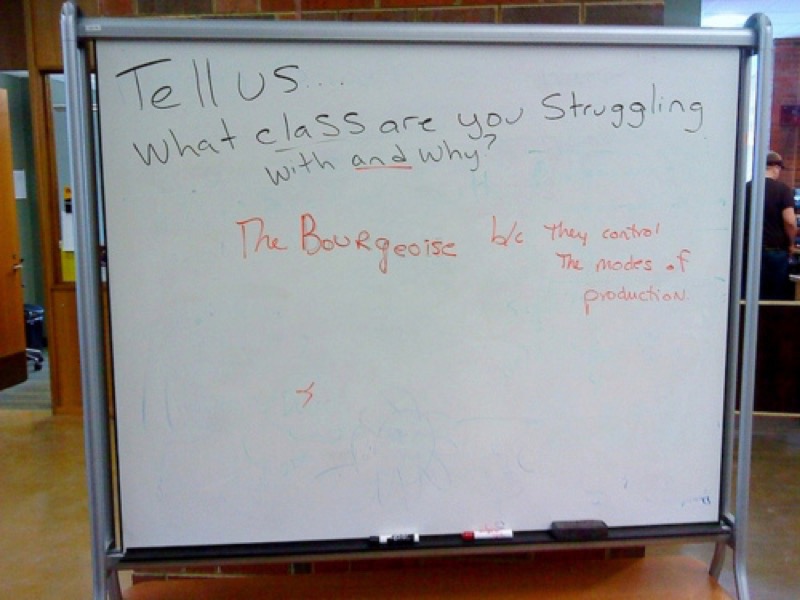 Tell us...
What class are you Struggling
with and why?
The Bourgeoise b/c They control
The modes of
production